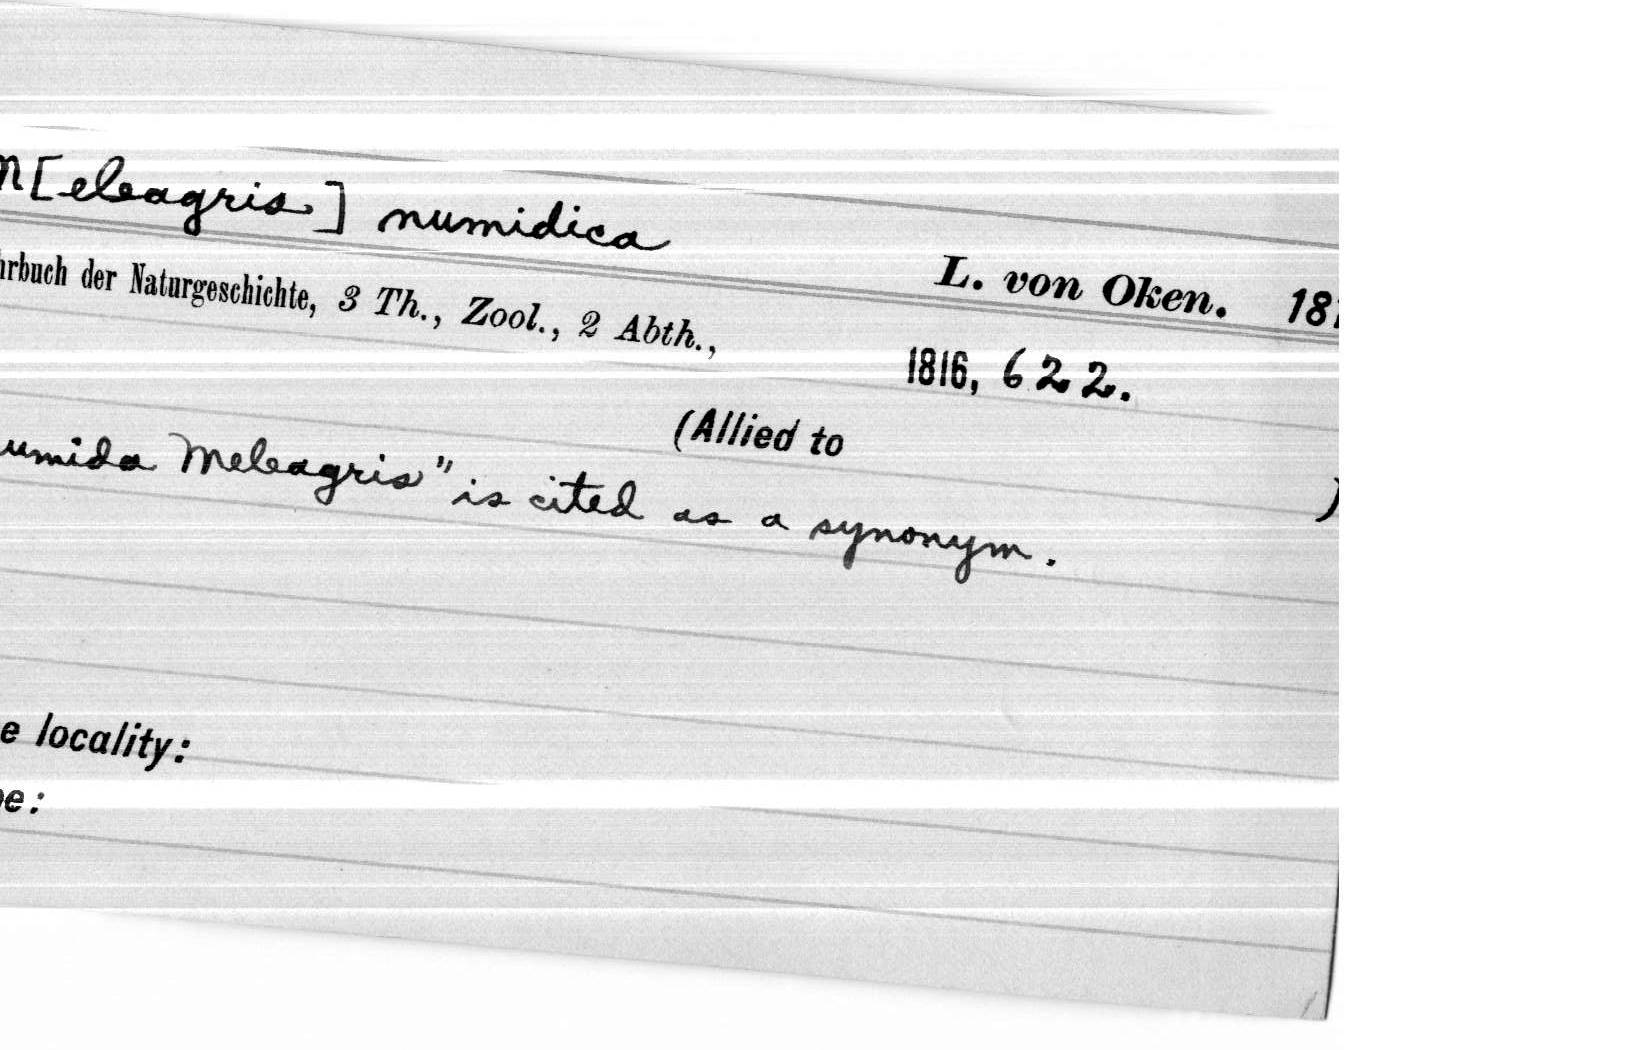 M[eleagris] numidica
L. von Oken. 181
hrbuch der Naturgeschichte, 3 Th., Zool., 2 Abth.,
1816, 622.
(Allied to )
umida Meleagris" is cited as a synonym.
e locality:
pe: